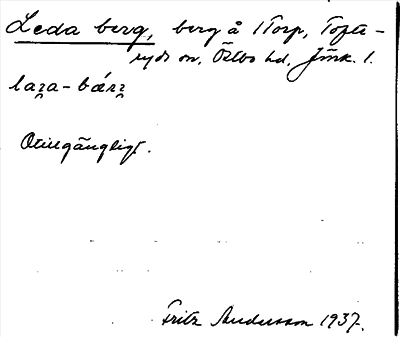 Leda berg, berg å Torp, Tofte-
ryds sn, Östbo hd, Jönk. l.
laʒa-bárʒ
Otillgängligt.
Fritz Andersson 1937.